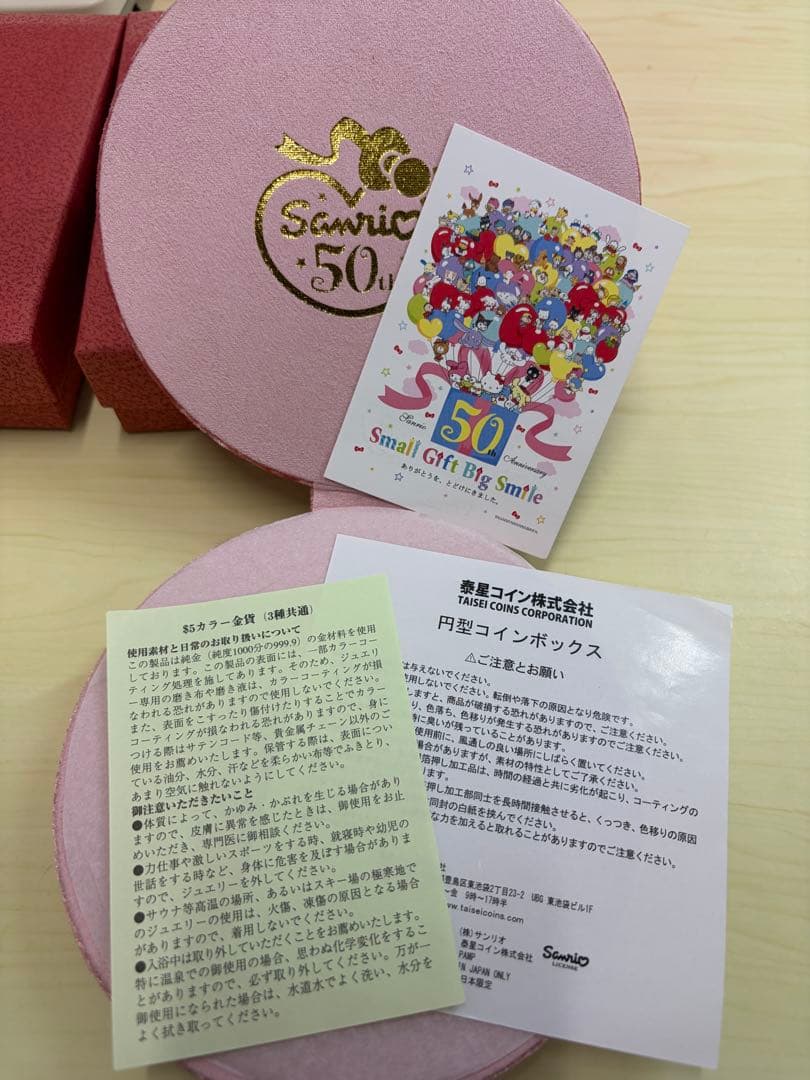 Sanrio
50th
Sanrio
50th
Anniversary
Small Gift Big Smile
ありがとうを、とどけにきました。
$5カラー金貨（3種共通）
使用素材と日常のお取り扱いについて
この製品は純金（純度1000分の999.9）の金材料を使用
しております。この製品の表面には、一部カラーコー
ティング処理を施してあります。そのため、ジュエリ
ー専用の磨き布や磨き液は、カラーコーティングが損
なわれる恐れがありますので使用しないでください。
また、表面をこすったり傷付けたりすることでカラー
コーティングが損なわれる恐れがありますので、身に
つける際はサテンコード等、貴金属チェーン以外のご
使用をお薦めいたします。保管する際は、表面につい
ている油分、水分、汗などを柔らかい布等でふきとり、
あまり空気に触れないようにしてください。
御注意いただきたいこと
●体質によって、かゆみ・かぶれを生じる場合があり
ますので、皮膚に異常を感じたときは、御使用をお止
めいただき、専門医に御相談ください。
●力仕事や激しいスポーツをする時、就寝時や幼児の
世話をする時など、身体に危害を及ぼす場合がありま
すので、ジュエリーを外してください。
●サウナ等高温の場所、あるいはスキー場の極寒地で
のジュエリーの使用は、火傷、凍傷の原因となる場合
がありますので、着用しないでください。
●入浴中は取り外していただくことをお薦めいたします。
特に温泉での御使用の場合、思わぬ化学変化をするこ
とがありますので、必ず取り外してください。万が一
御使用になられた場合は、水道水でよく洗い、水分を
よく拭き取ってください。
泰星コイン株式会社
TAISEI COINS CORPORATION
円型コインボックス
⚠ご注意とお願い
は与えないでください。
使用しないでください。転倒や落下の原因となり危険です。
しますと、商品が破損する恐れがありますので、ご注意ください。
り、色落ち、色移りが発生する恐れがありますのでご注意ください。
時に臭いが残っていることがあります。
使用前に、風通しの良い場所にしばらく置いてください。
場合がありますが、素材の特性としてご了承ください。
箔押し加工品は、時間の経過と共に劣化が起こり、コーティングの
ります。
押し加工部同士を長時間接触させると、くっつき、色移りの原因
同封の白紙を挟んでください。
な力を加えると取れることがありますのでご注意ください。
社
豊島区東池袋2丁目23-2 UBG 東池袋ビル1F
～金 9時～17時半
www.taiseicoins.com
(株)サンリオ
泰星コイン株式会社
PAMP
IN JAPAN ONLY
日本限定
Sanrio
LICENSE